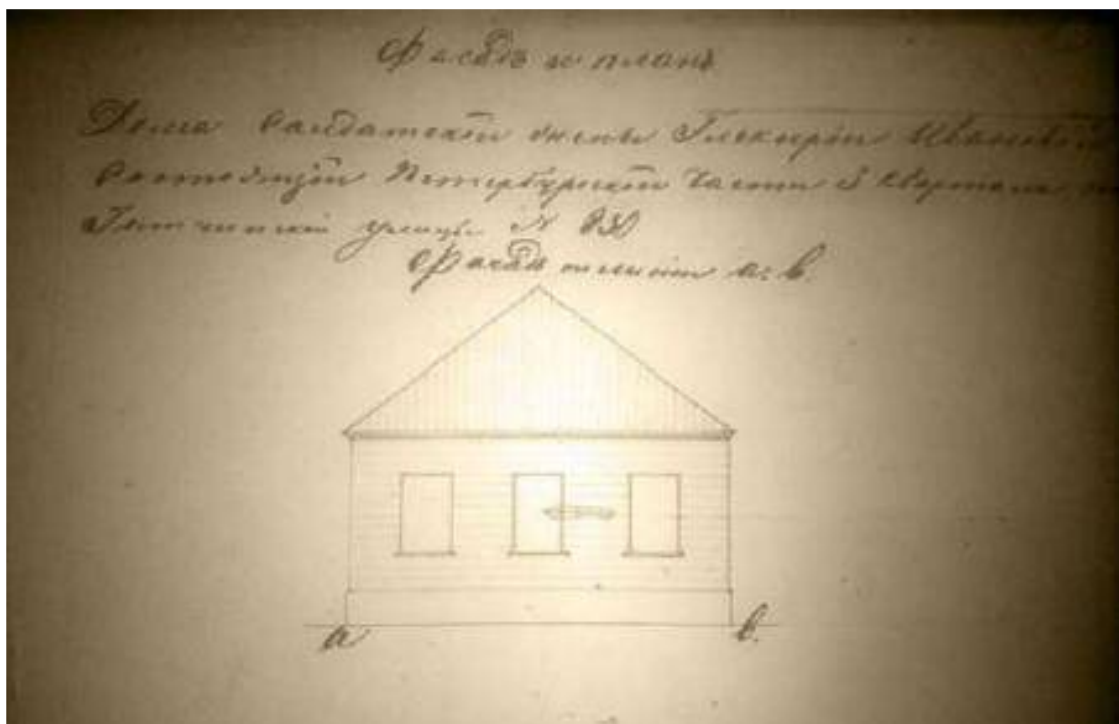 Фасадъ и планъ
Дома Салдатской жены Гликеріи Ивановой
состоящей Петербургской Части 3 Квартала
Гатчинской улицы N
Фасадъ по линіи а: в.
а в.